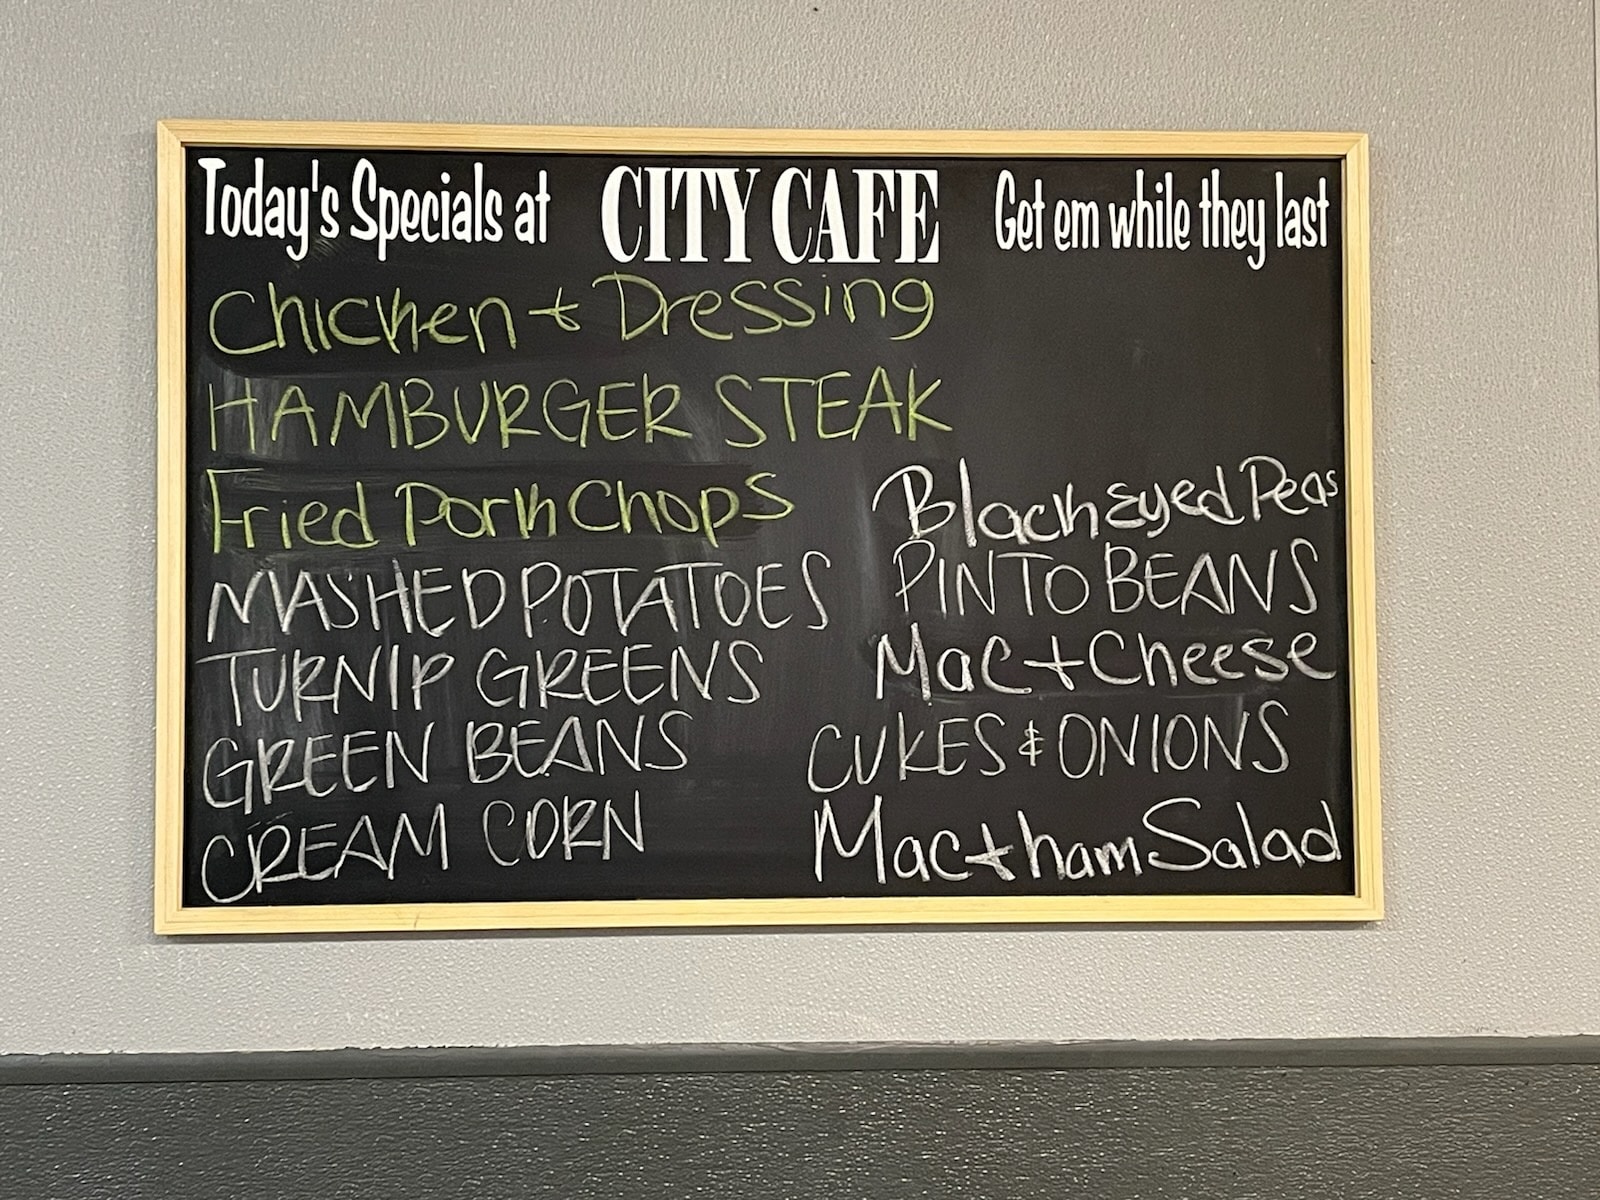 Today's Specials at CITY CAFE Get em while they last
Chicken + Dressing
HAMBURGER STEAK
Fried Pork Chops
MASHED POTATOES
TURNIP GREENS
GREEN BEANS
CREAM CORN
Black Eyed Peas
PINTO BEANS
Mac + Cheese
CUKES & ONIONS
Mac + ham Salad